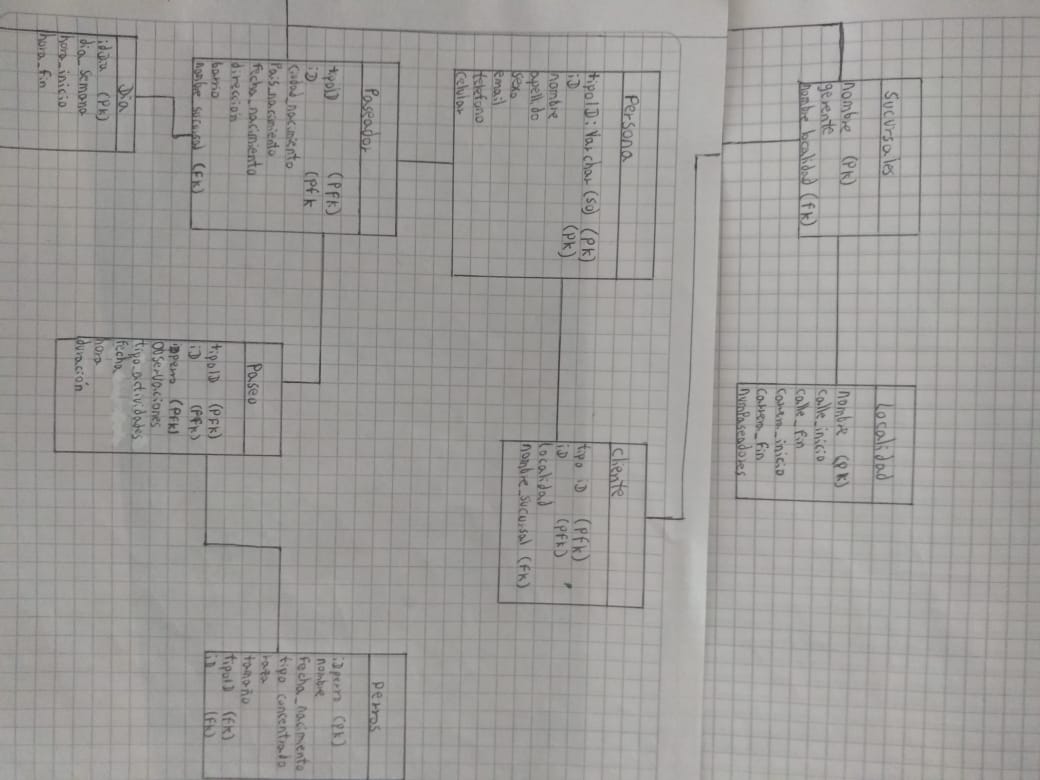 Sucursales
nombre (PK)
gerente
nombre localidad (fk)
Localidad
nombre (PK)
calle_inicio
calle_fin
carrera_inicio
carrera_fin
numPaseadores
Persona
tipoID: Varchar (50) (PK)
iD (PK)
nombre
apellido
sexo
email
telefono
celular
cliente
tipo iD (Pfk)
iD (Pfk)
Localidad
nombre_sucursal (fk)
Paseador
tipoID (Pfk)
iD (Pfk
Ciudad_nacimiento
Pais_nacimiento
fecha_nacimiento
dirección
barrio
nombre sucursal (fk)
Perros
iDperro (PK)
nombre
fecha_nacimiento
tipo concentrado
raza
tamaño
tipoID (fk)
iD (fk)
Paseo
tipoID (PFK)
iD (Pfk)
iDperro (Pfk)
observaciones
tipo_actividades
fecha
hora
duración
Dia
idDia (PK)
dia_semana
hora_inicio
hora_fin